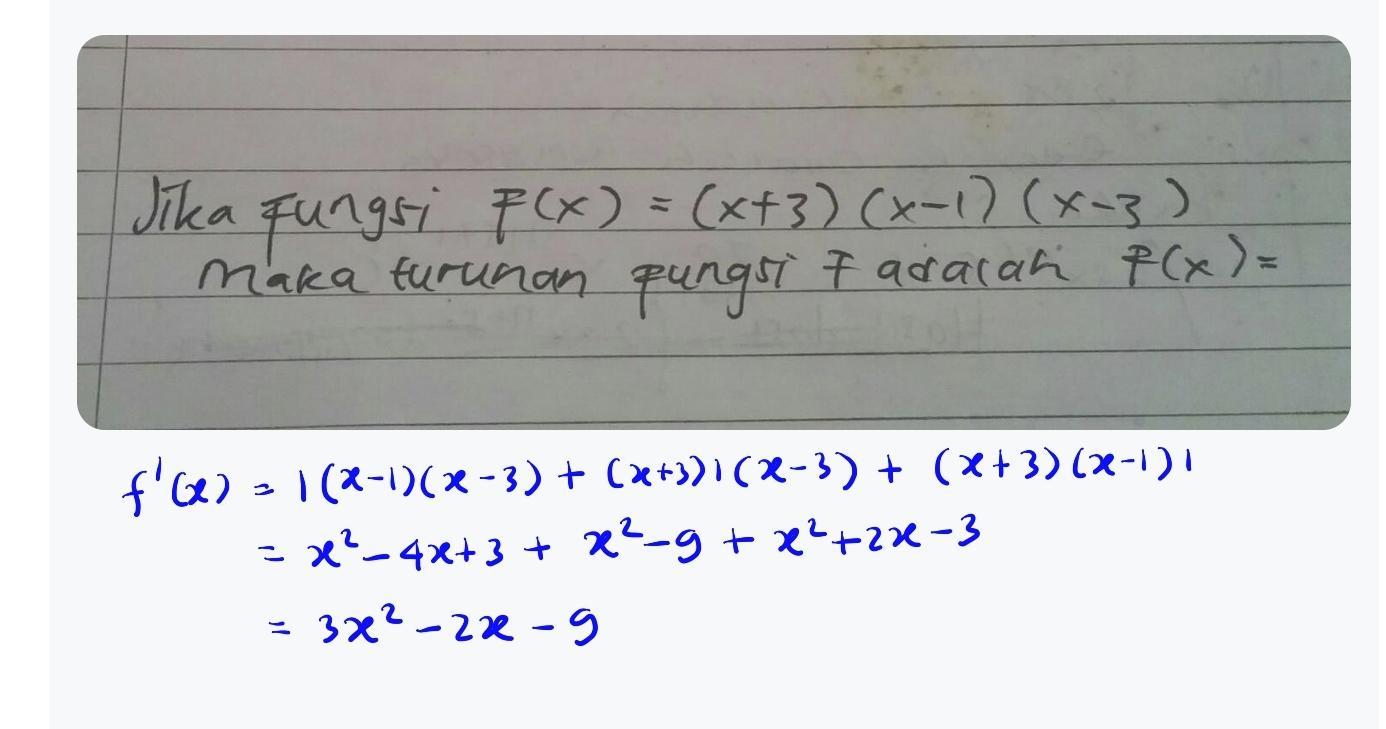 Jika fungsi F(x) = (x+3) (x-1) (x-3)
Maka turunan fungsi F adalah F(x) =
f'(x) = 1(x-1)(x-3) + (x+3)1(x-3) + (x+3)(x-1)1
= x²-4x+3 + x²-9 + x²+2x-3
= 3x²-2x-9